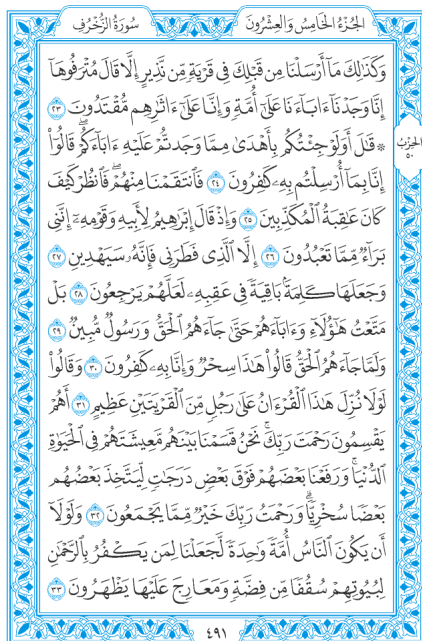 سُورَةُ الزُّخْرُفِ الجُزْءُ الخَامِسُ وَالعِشْرُونَ
وَكَذَٰلِكَ مَآ أَرْسَلْنَا مِن قَبْلِكَ فِى قَرْيَةٍ مِّن نَّذِيرٍ إِلَّا قَالَ مُتْرَفُوهَآ
إِنَّا وَجَدْنَآ ءَابَآءَنَا عَلَىٰٓ أُمَّةٍ وَإِنَّا عَلَىٰٓ ءَاثَٰرِهِم مُّقْتَدُونَ ٢٣
۞ قَٰلَ أَوَلَوْ جِئْتُكُم بِأَهْدَىٰ مِمَّا وَجَدتُّمْ عَلَيْهِ ءَابَآءَكُمْ ۖ قَالُوٓا۟
الحِزْبُ
٥٠
إِنَّا بِمَآ أُرْسِلْتُم بِهِۦ كَٰفِرُونَ ٢٤ فَٱنتَقَمْنَا مِنْهُمْ ۖ فَٱنظُرْ كَيْفَ
كَانَ عَٰقِبَةُ ٱلْمُكَذِّبِينَ ٢٥ وَإِذْ قَالَ إِبْرَٰهِيمُ لِأَبِيهِ وَقَوْمِهِۦٓ إِنَّنِى
بَرَآءٌ مِّمَّا تَعْبُدُونَ ٢٦ إِلَّا ٱلَّذِى فَطَرَنِى فَإِنَّهُۥ سَيَهْدِينِ ٢٧
وَجَعَلَهَا كَلِمَةًۢ بَاقِيَةً فِى عَقِبِهِۦ لَعَلَّهُمْ يَرْجِعُونَ ٢٨ بَلْ
مَتَّعْتُ هَٰٓؤُلَآءِ وَءَابَآءَهُمْ حَتَّىٰ جَآءَهُمُ ٱلْحَقُّ وَرَسُولٌ مُّبِينٌ ٢٩
وَلَمَّا جَآءَهُمُ ٱلْحَقُّ قَالُوا۟ هَٰذَا سِحْرٌ وَإِنَّا بِهِۦ كَٰفِرُونَ ٣٠ وَقَالُوا۟
لَوْلَا نُزِّلَ هَٰذَا ٱلْقُرْءَانُ عَلَىٰ رَجُلٍ مِّنَ ٱلْقَرْيَتَيْنِ عَظِيمٍ ٣١ أَهُمْ
يَقْسِمُونَ رَحْمَتَ رَبِّكَ ۚ نَحْنُ قَسَمْنَا بَيْنَهُم مَّعِيشَتَهُمْ فِى ٱلْحَيَوٰةِ
ٱلدُّنْيَا ۚ وَرَفَعْنَا بَعْضَهُمْ فَوْقَ بَعْضٍ دَرَجَٰتٍ لِّيَتَّخِذَ بَعْضُهُم
بَعْضًا سُخْرِيًّا ۗ وَرَحْمَتُ رَبِّكَ خَيْرٌ مِّمَّا يَجْمَعُونَ ٣٢ وَلَوْلَآ
أَن يَكُونَ ٱلنَّاسُ أُمَّةً وَٰحِدَةً لَّجَعَلْنَا لِمَن يَكْفُرُ بِٱلرَّحْمَٰنِ
لِبُيُوتِهِمْ سُقُفًا مِّن فِضَّةٍ وَمَعَارِجَ عَلَيْهَا يَظْهَرُونَ ٣٣
٤٩١